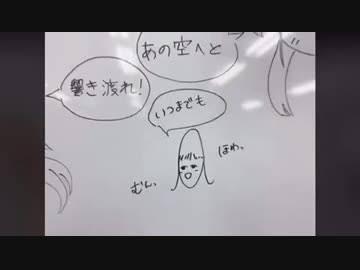 あの空へと
響き渡れ!
いつまでも
ほわ、
むん、